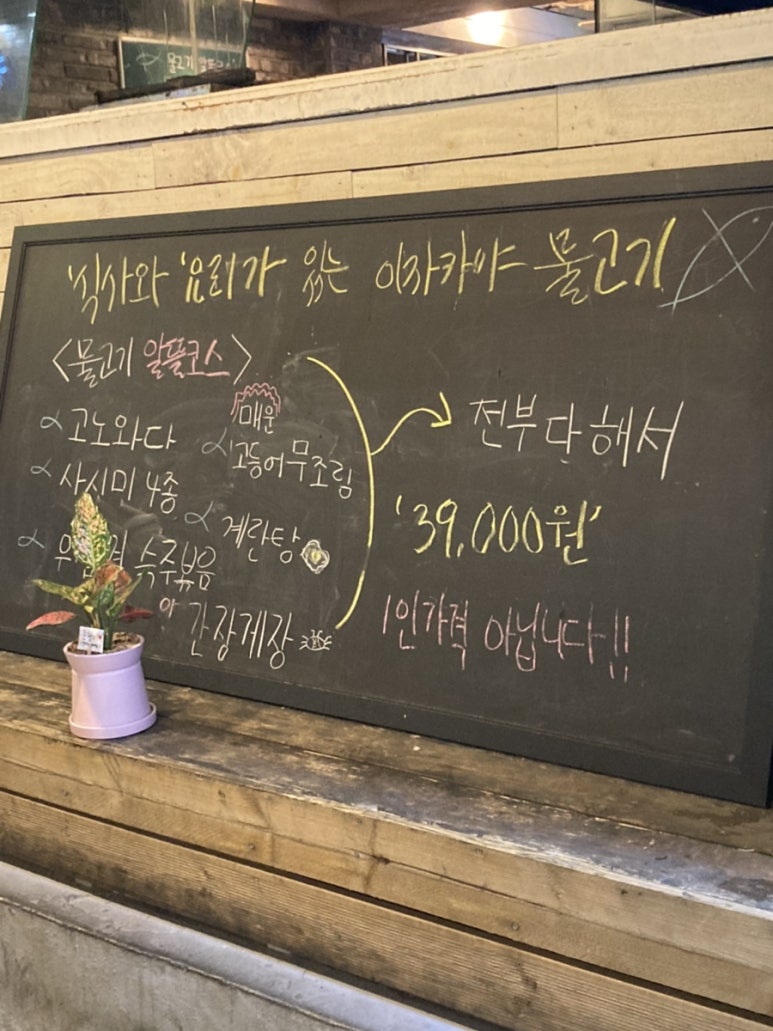 '식사'와 '요리'가 있는 이자카야 물고기
<물고기 알뜰코스>
고노와다
사시미 4종
숙주볶음
매운
고등어무조림
계란탕
간장게장
전부 다 해서
'39,000원'
1인가격 아닙니다!!